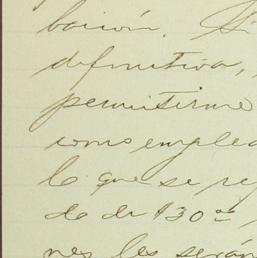 bación. Si
definitiva,
permitirme
como emplea
lo que se re
do de $30.00,
nes les serán